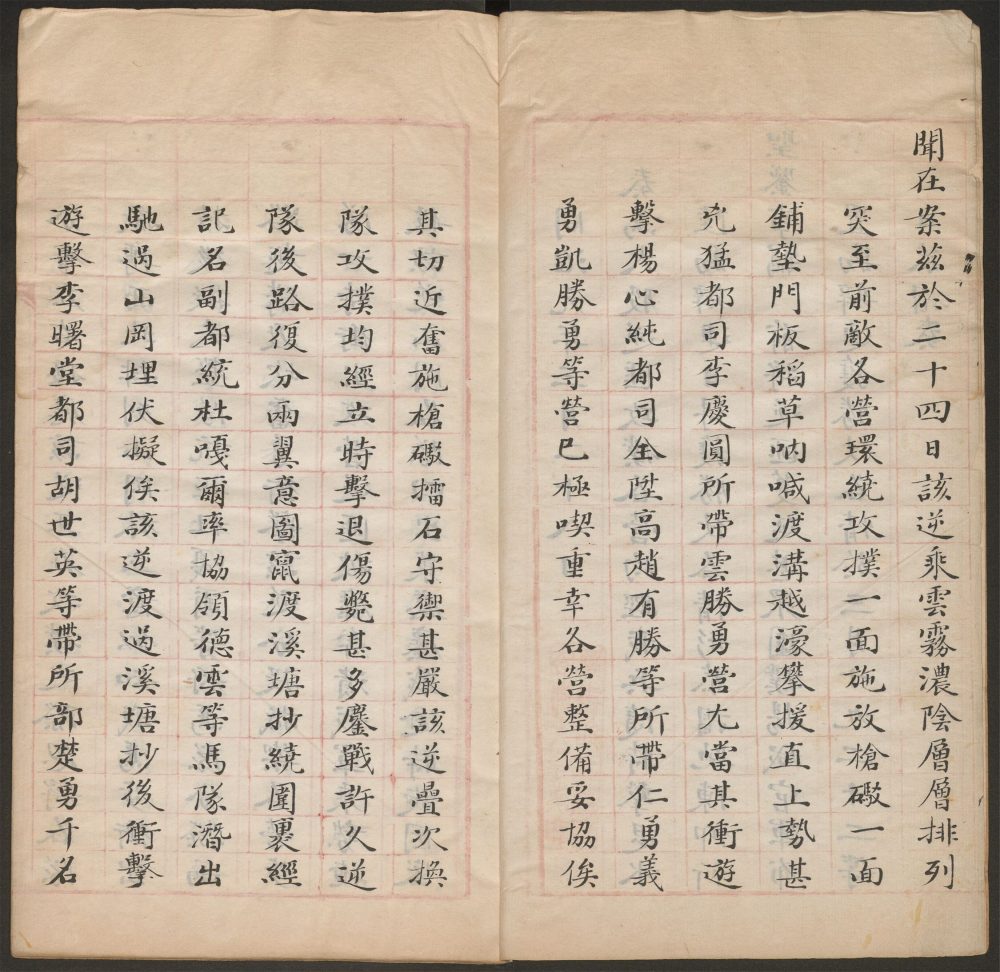 聞在案茲於二十四日該逆乘雲霧濃陰層層排列
突至前敵各營環繞攻撲一面施放槍礮一面
鋪墊門板稻草吶喊渡溝越濠攀援直上勢甚
兇猛都司李慶圓所帶雲勝勇營尤當其衝遊
擊楊心純都司全陞高趙有勝等所帶仁勇義
勇凱勝勇等營已極喫重幸各營整備妥協俟
其切近奮施槍礮擂石守禦甚嚴該逆疊次換
隊攻撲均經立時擊退傷斃甚多鏖戰許久逆
隊後路復分兩翼意圖竄渡溪塘抄繞圍裹經
記名副都統杜嘎爾率協領德雲等馬隊潛出
馳過山岡埋伏擬俟該逆渡過溪塘抄後衝擊
遊擊李曙堂都司胡世英等帶所部楚勇千名